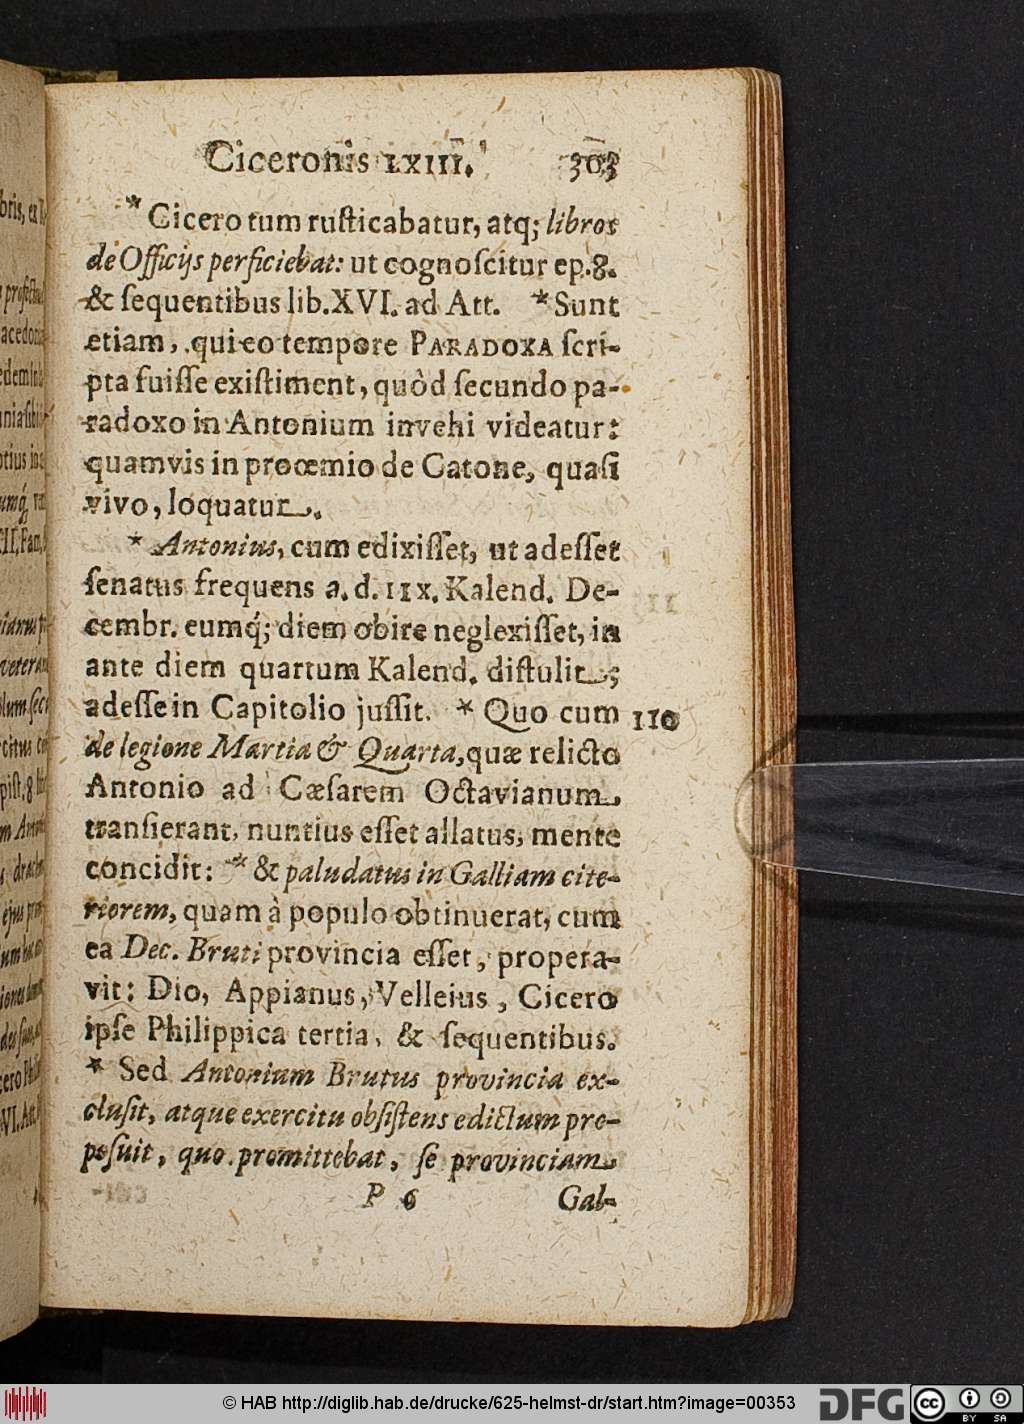 Ciceronis LXIII. 303
* Cicero tum ruſticabatur, atq; libros
de Officijs perficiebat: ut cognoſcitur ep. 8.
& ſequentibus lib. XVI. ad Att. * Sunt
etiam, qui eo tempore PARADOXA ſcri-
pta fuiſſe exiſtiment, quòd ſecundo pa-
radoxo in Antonium invehi videatur:
quamvis in proœmio de Catone, quaſi
vivo, loquatur.
* Antonius, cum edixiſſet, ut adeſſet
ſenatus frequens a. d. IIX. Kalend. De-
cembr. eumq́; diem obire neglexiſſet, in
ante diem quartum Kalend. diſtulit;
adeſſe in Capitolio juſſit. * Quo cum 110
de legione Martia & Quarta, quæ relicto
Antonio ad Cæſarem Octavianum
tranſierant, nuntius eſſet allatus, mente
concidit: * & paludatus in Galliam cite-
riorem, quam à populo obtinuerat, cum
ea Dec. Bruti provincia eſſet, propera-
vit: Dio, Appianus, Velleius, Cicero
ipſe Philippica tertia, & ſequentibus.
* Sed Antonium Brutus provincia ex-
cluſit, atque exercitu obſiſtens edictum pro-
poſuit, quo promittebat, ſe provinciam
P 6 Gal-
© HAB http://diglib.hab.de/drucke/625-helmst-dr/start.htm?image=00353
DFG
cc BY SA